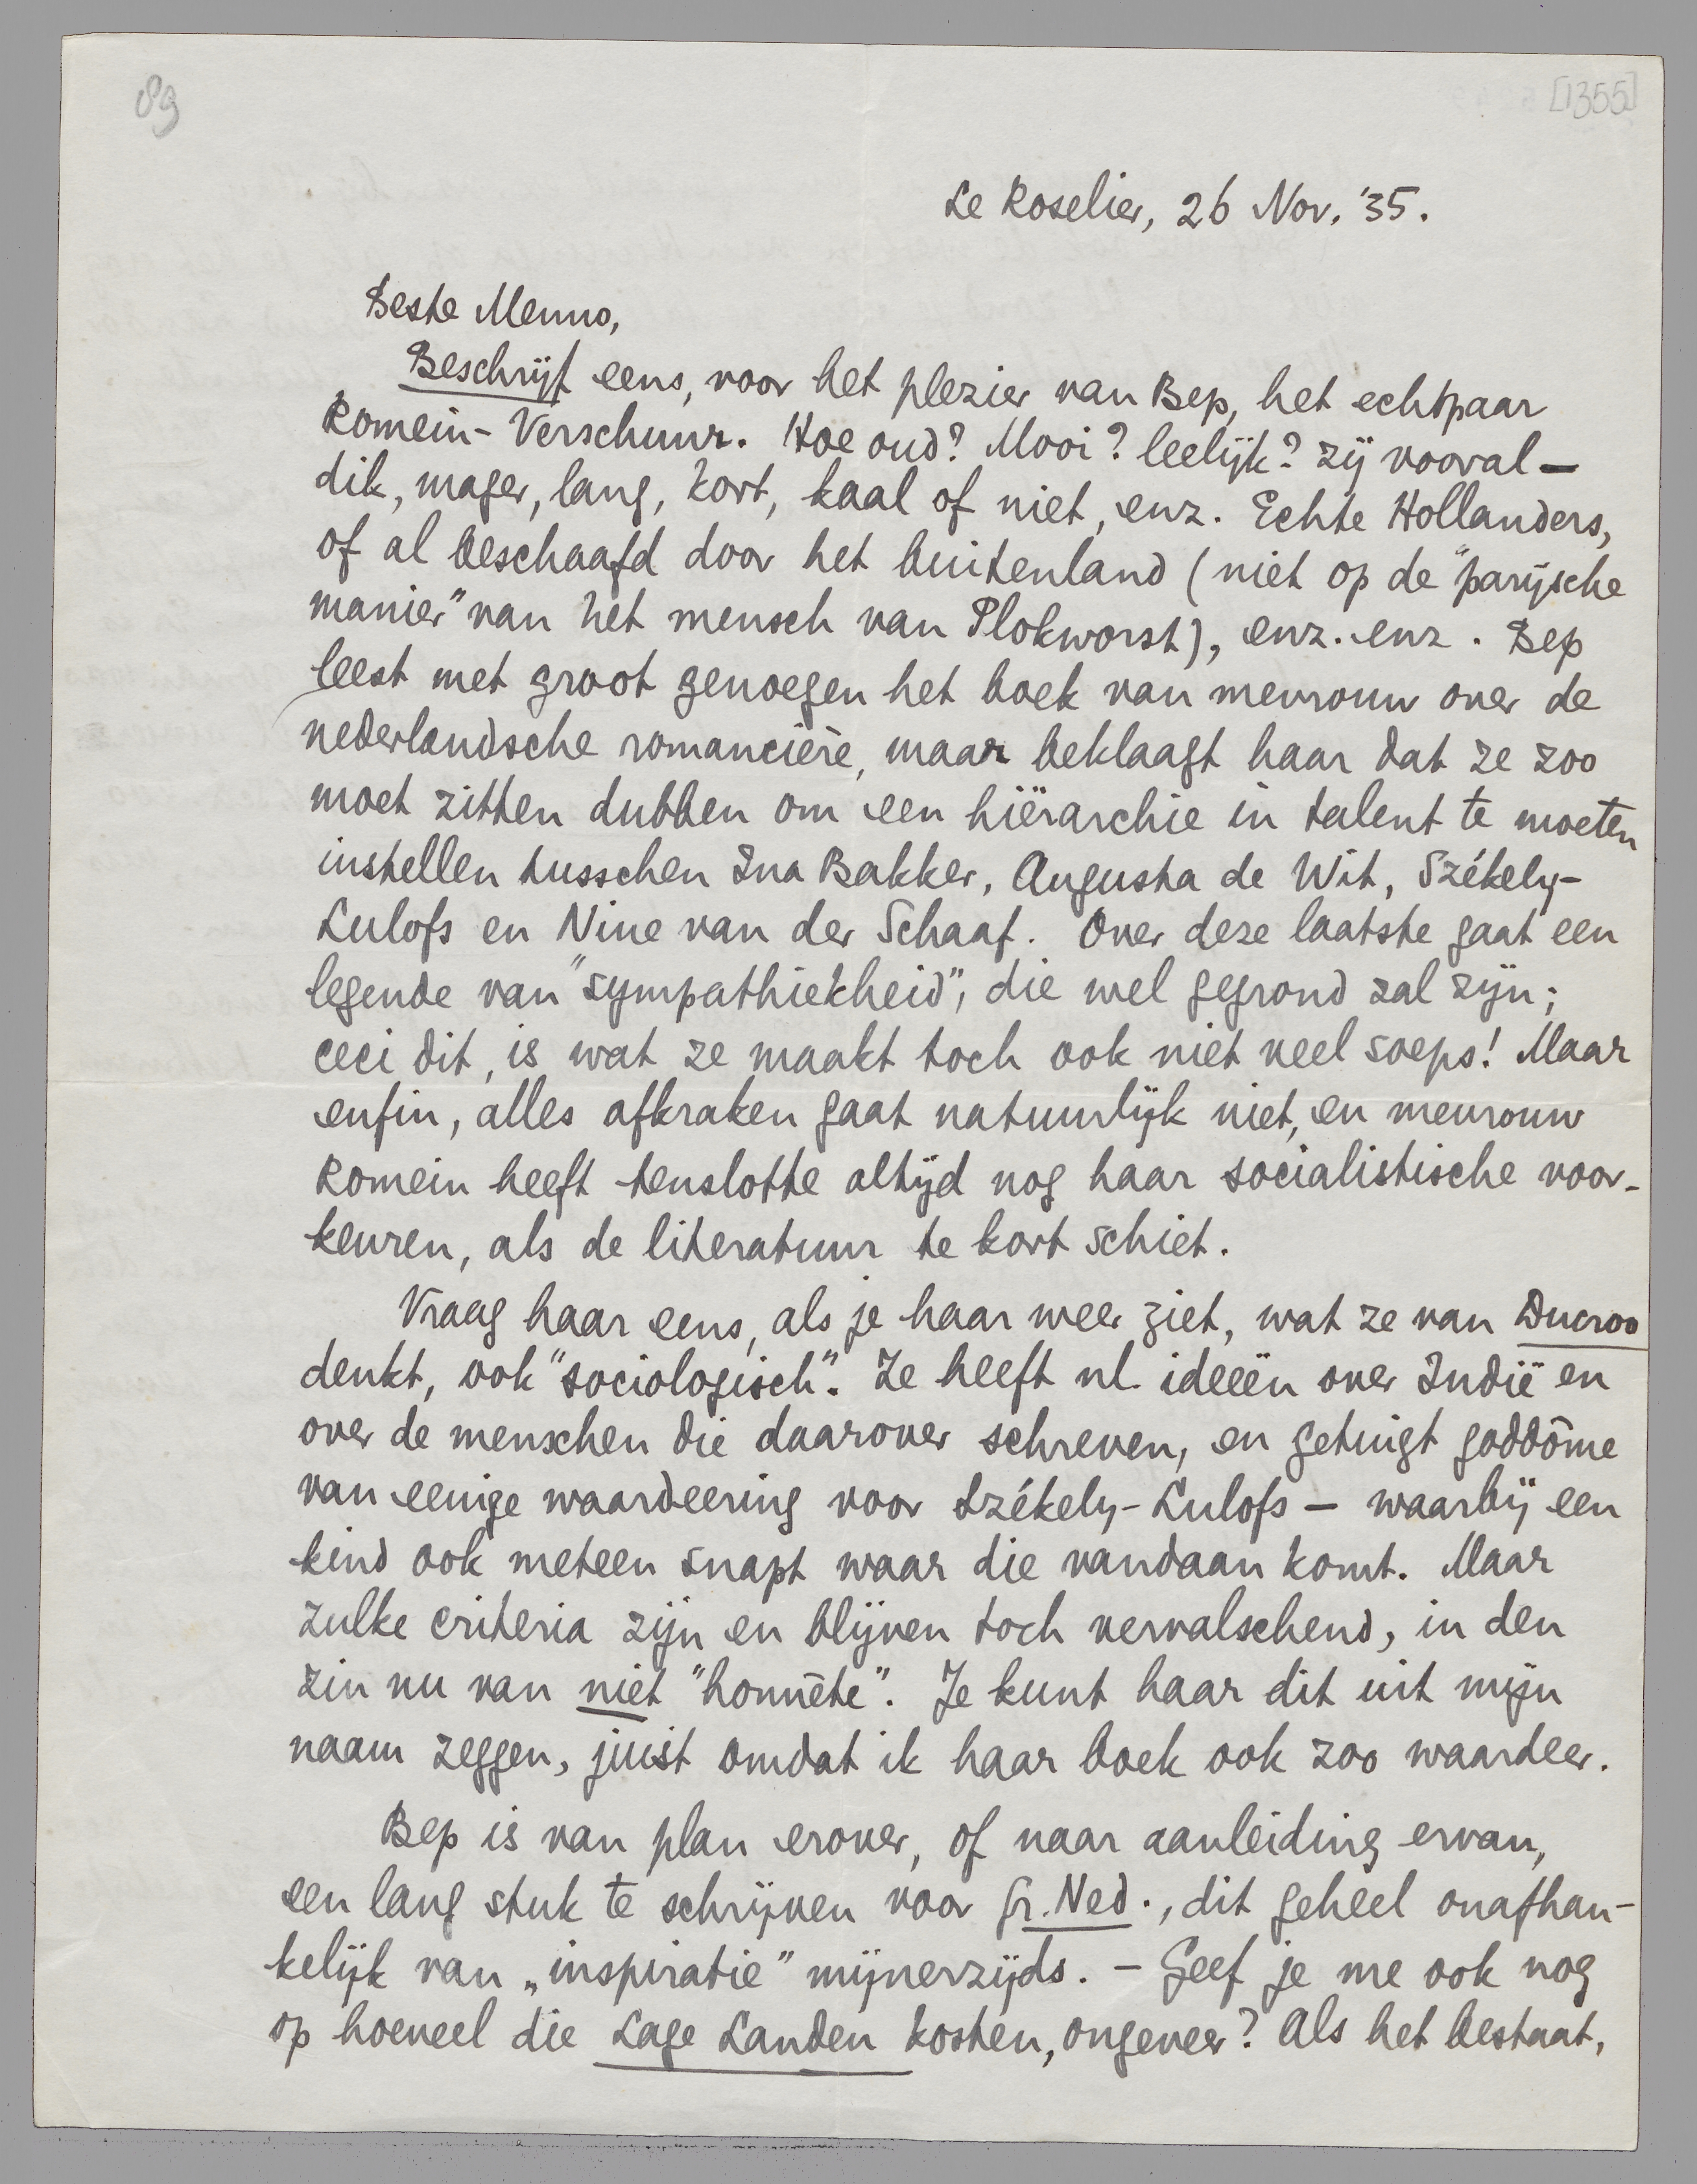 89
[1355]
Le Roselier, 26 Nov. '35.
Beste Menno,
Beschrijf eens, voor het plezier van Bep, het echtpaar
Romein-Verschuur. Hoe oud? Mooi? leelijk? zij vooral –
dik, mager, lang, kort, kaal of niet, enz. Echte Hollanders,
of al beschaafd door het buitenland (niet op de "parijsche
manier" van het mensch van Plokworst), enz. enz. Bep
leest met groot genoegen het boek van mevrouw over de
nederlandsche romancière, maar beklaagt haar dat ze zoo
moet zitten dubben om een hiërarchie in talent te moeten
instellen tusschen Ina Bakker, Augusta de Wit, Székely-
Lulofs en Nine van der Schaaf. Over deze laatste gaat een
legende van "sympathiekheid", die wel gegrond zal zijn;
ceci dit, is wat ze maakt toch ook niet veel soeps! Maar
enfin, alles afkraken gaat natuurlijk niet, en mevrouw
Romein heeft tenslotte altijd nog haar socialistische voor-
keuren, als de literatuur te kort schiet.
Vraag haar eens, als je haar weer ziet, wat ze van Ducroo
denkt, ook "sociologisch". Ze heeft nl. ideeën over Indië en
over de menschen die daarover schreven, en getuigt goddôme
van eenige waardeering voor Székely-Lulofs – waarbij een
kind ook meteen snapt waar die vandaan komt. Maar
zulke criteria zijn en blijven toch vervalschend, in den
zin nu van niet "honnête". Je kunt haar dit uit mijn
naam zeggen, juist omdat ik haar boek ook zoo waardeer.
Bep is van plan erover, of naar aanleiding ervan,
een lang stuk te schrijven voor Gr. Ned., dit geheel onafhan-
kelijk van „inspiratie" mijnerzijds. – Geef je me ook nog
op hoeveel die Lage Landen kosten, ongeveer? Als het bestaat,